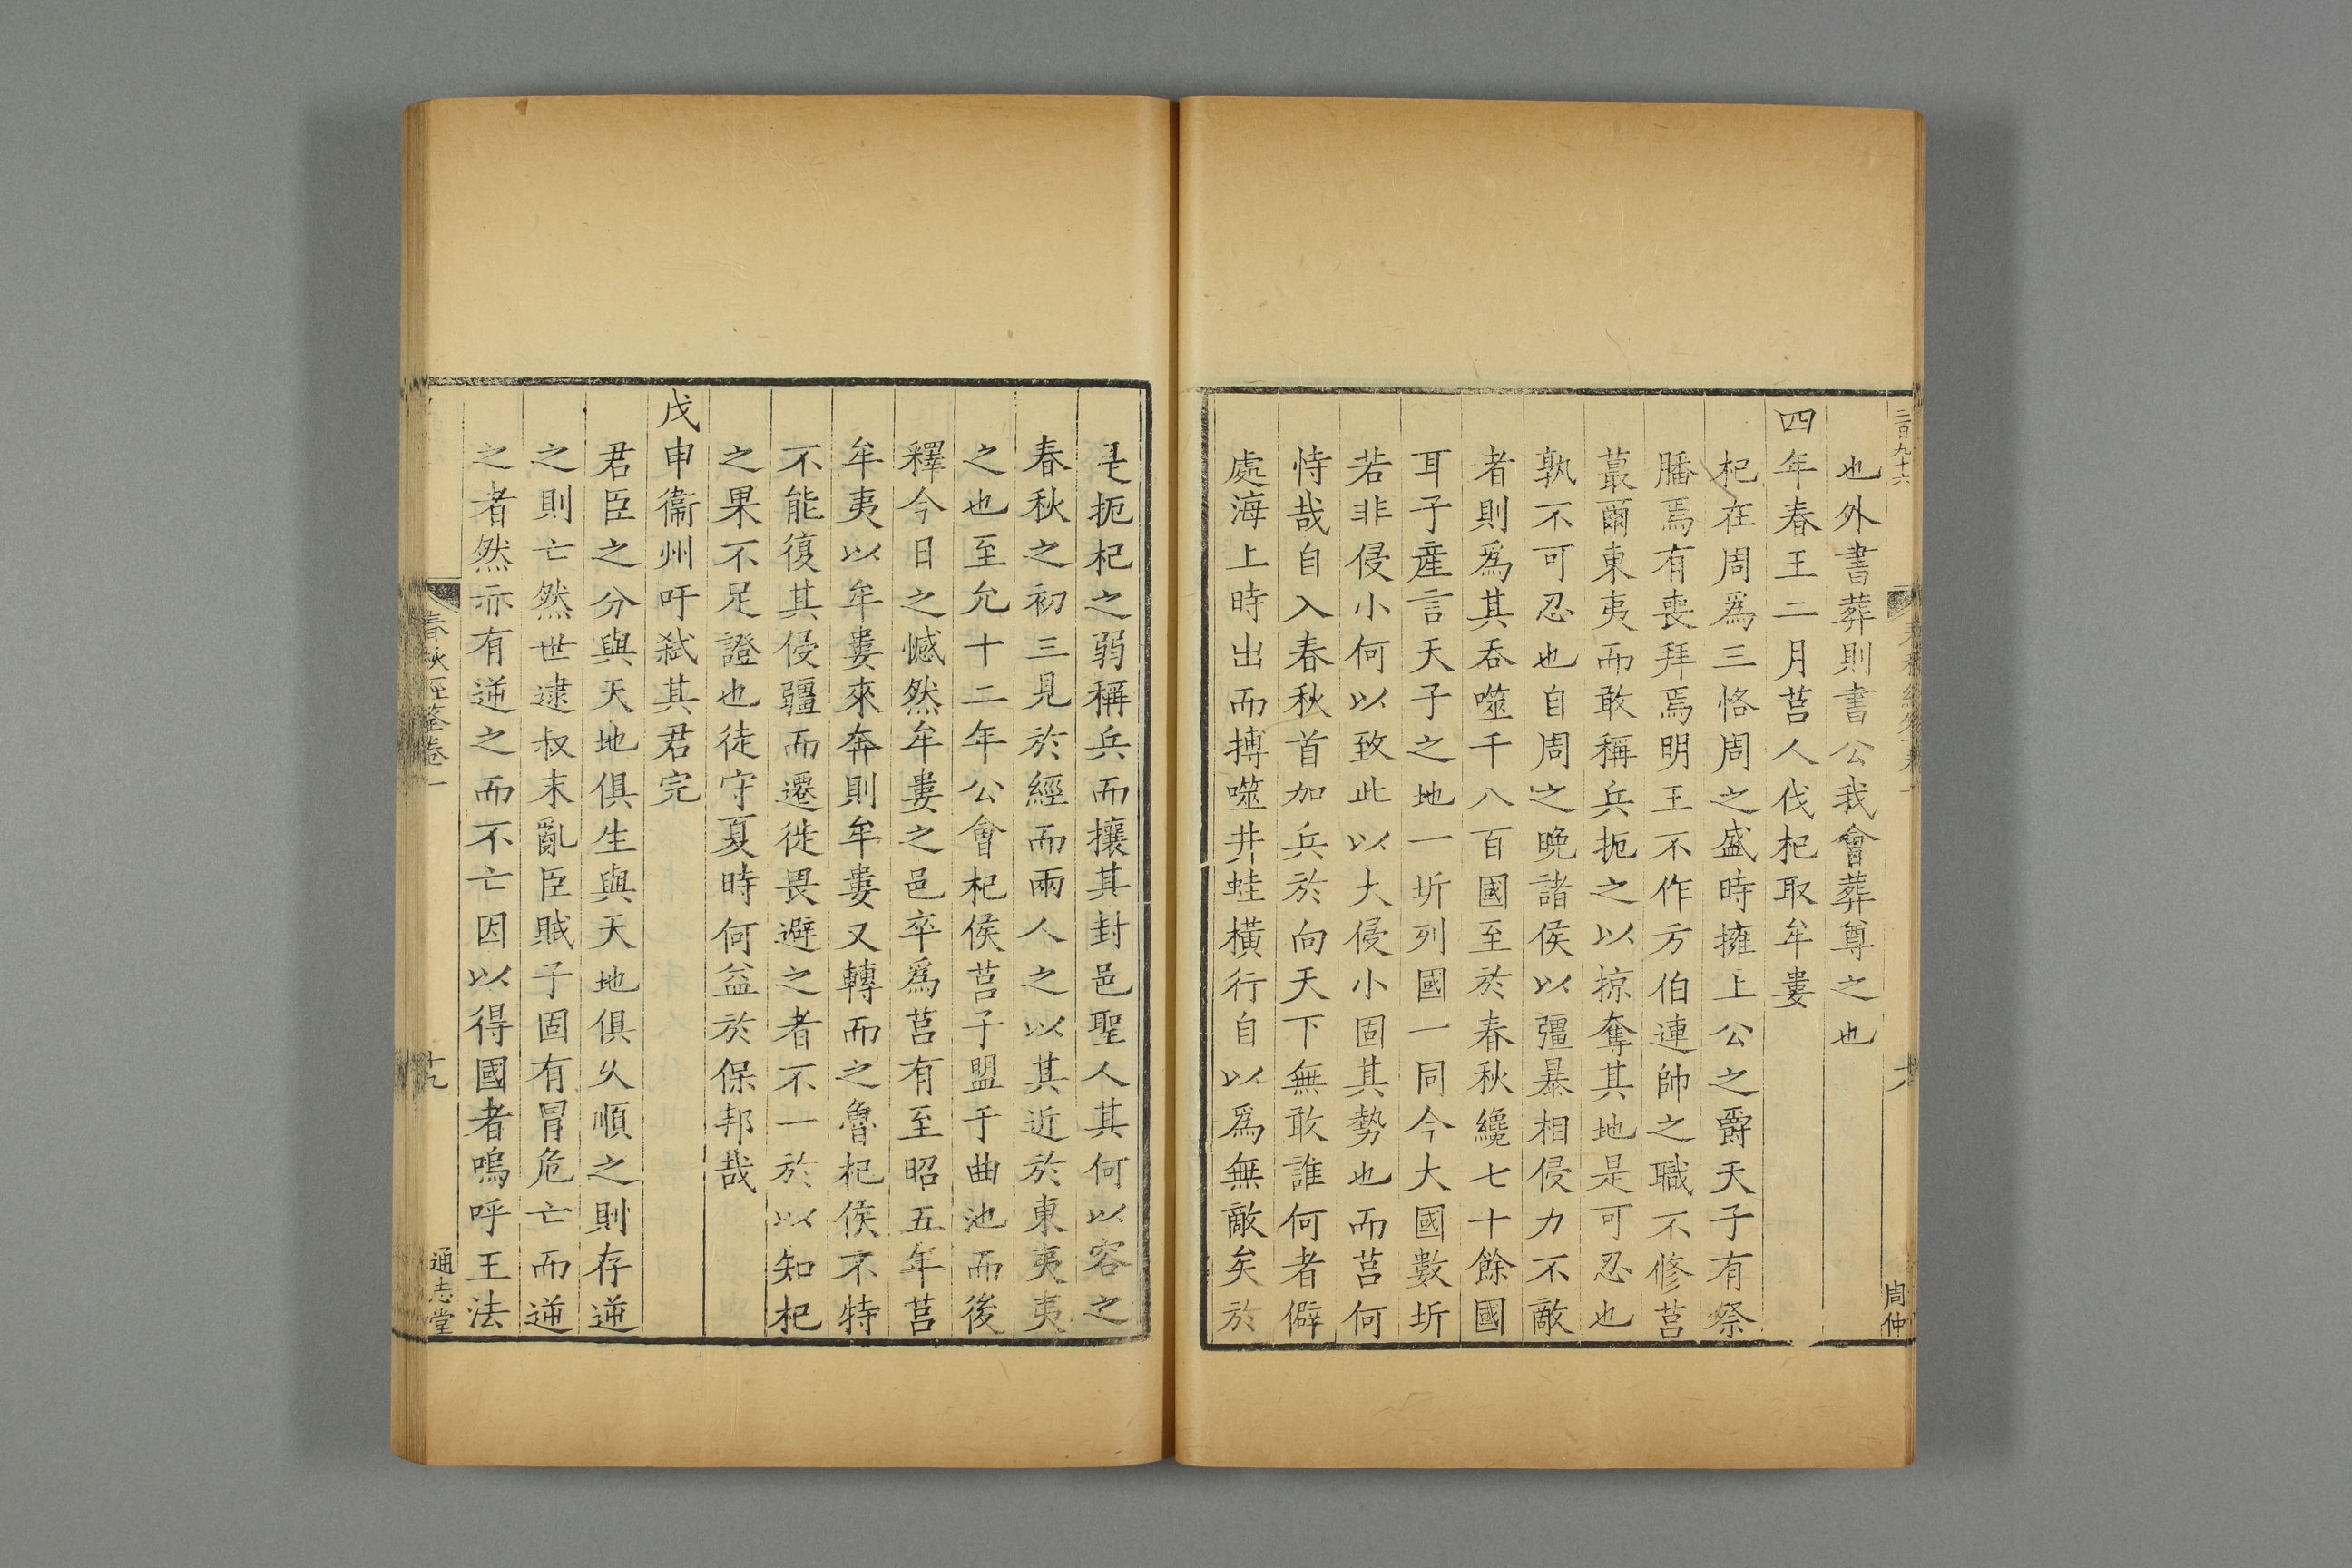 二百九十六
周仲
也外書葬則書公我會葬尊之也
四年春王二月莒人伐杞取牟婁
杞在周爲三恪周之盛時擁上公之爵天子有祭
膰焉有喪拜焉明王不作方伯連帥之職不修莒
蕞爾東夷而敢稱兵扼之以掠奪其地是可忍也
孰不可忍也自周之晩諸侯以彊暴相侵力不敵
者則爲其吞噬千八百國至於春秋纔七十餘國
耳子產言天子之地一圻列國一同今大國數圻
若非侵小何以致此以大侵小固其勢也而莒何
恃哉自入春秋首加兵於向天下無敢誰何者僻
處海上時出而搏噬井蛙橫行自以爲無敵矣於
是扼杞之弱稱兵而攘其封邑聖人其何以容之
春秋之初三見於經而兩人之以其近於東夷夷
之也至允十二年公會杞侯莒子盟于曲池而後
釋今日之憾然牟婁之邑卒爲莒有至昭五年莒
牟夷以牟婁來奔則牟婁又轉而之魯杞侯不特
不能復其侵疆而遷徙畏避之者不一於以知杞
之果不足證也徒守夏時何益於保邦哉
戊申衞州吁弑其君完
君臣之分與天地俱生與天地俱久順之則存逆
之則亡然世逮叔末亂臣賊子固有冒危亡而逆
之者然亦有逆之而不亡因以得國者嗚呼王法
春秋經筌卷一
十九
通志堂